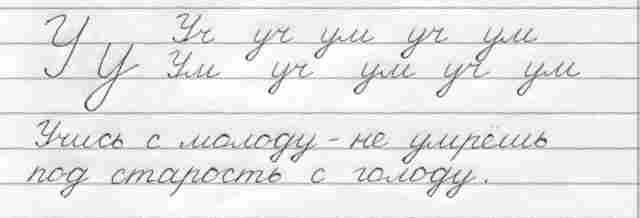 У у Уч уч ум уч ум
Ум уч ум уч ум
Учись с молоду - не умрёшь
под старость с голоду.